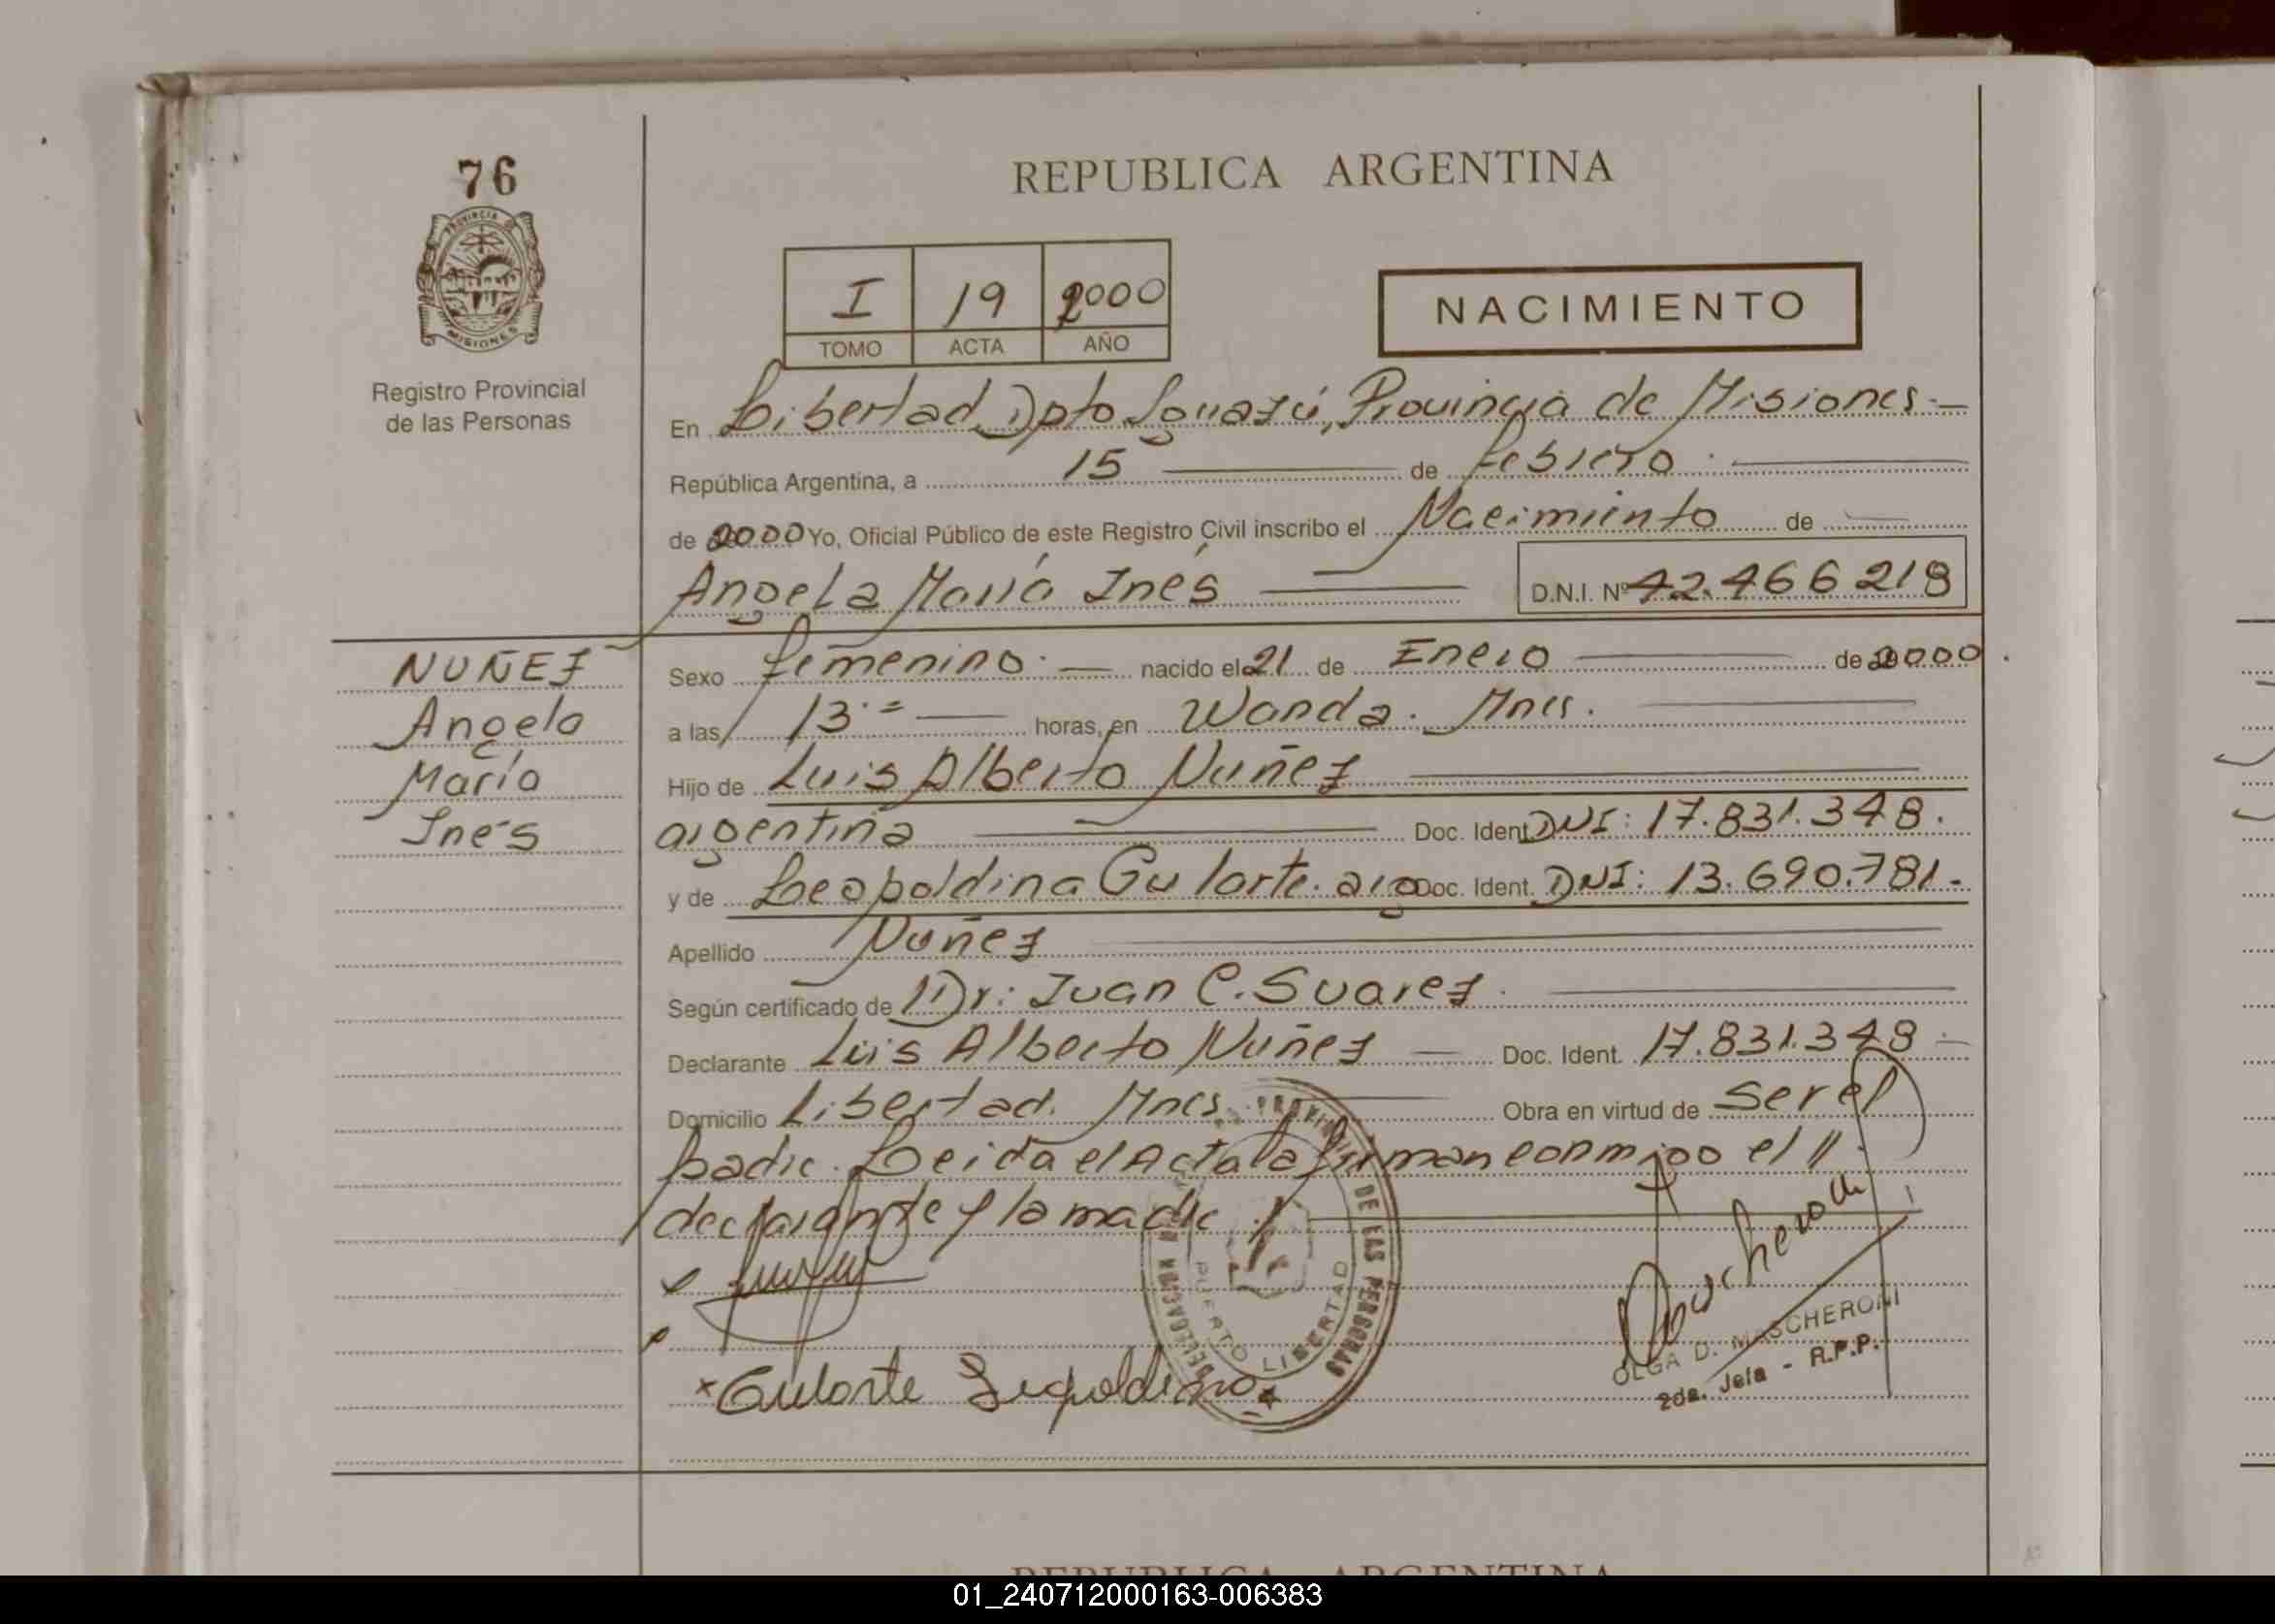 76
PROVINCIA DE
MISIONES
Registro Provincial
de las Personas
REPUBLICA ARGENTINA
I 19 2000
TOMO ACTA AÑO
NACIMIENTO
En Libertad, Dpto Iguazú, Provincia de Misiones.-
República Argentina, a 15 de febrero.
de 2000 Yo, Oficial Público de este Registro Civil inscribo el Nacimiento de
Angela María Inés D.N.I. Nº 42.466.218
NUÑEZ
Angela
María
Inés
Sexo femenino. nacido el 21 de Enero de 2000.
a las 13.= horas, en Wanda. Mnes.
Hijo de Luis Alberto Nuñez
argentina Doc. Ident. DNI: 17.831.348.
y de Leopoldina Gularte. arg Doc. Ident. DNI: 13.690.781.-
Apellido Nuñez
Según certificado de Dr: Juan C. Suarez.
Declarante Luis Alberto Nuñez Doc. Ident. 17.831.348-
Domicilio Libertad. Mnes. Obra en virtud de ser el
padre. Leida el Acta la firman conmigo el //
declarante y la madre.
DE LAS PERSONAS
DELEGACION
PUERTO LIBERTAD
x Gularte Leopoldina
Mascheroni
OLGA D. MASCHERONI
2da. Jefa - R.P.P.
REPUBLICA ARGENTINA
01_240712000163-006383